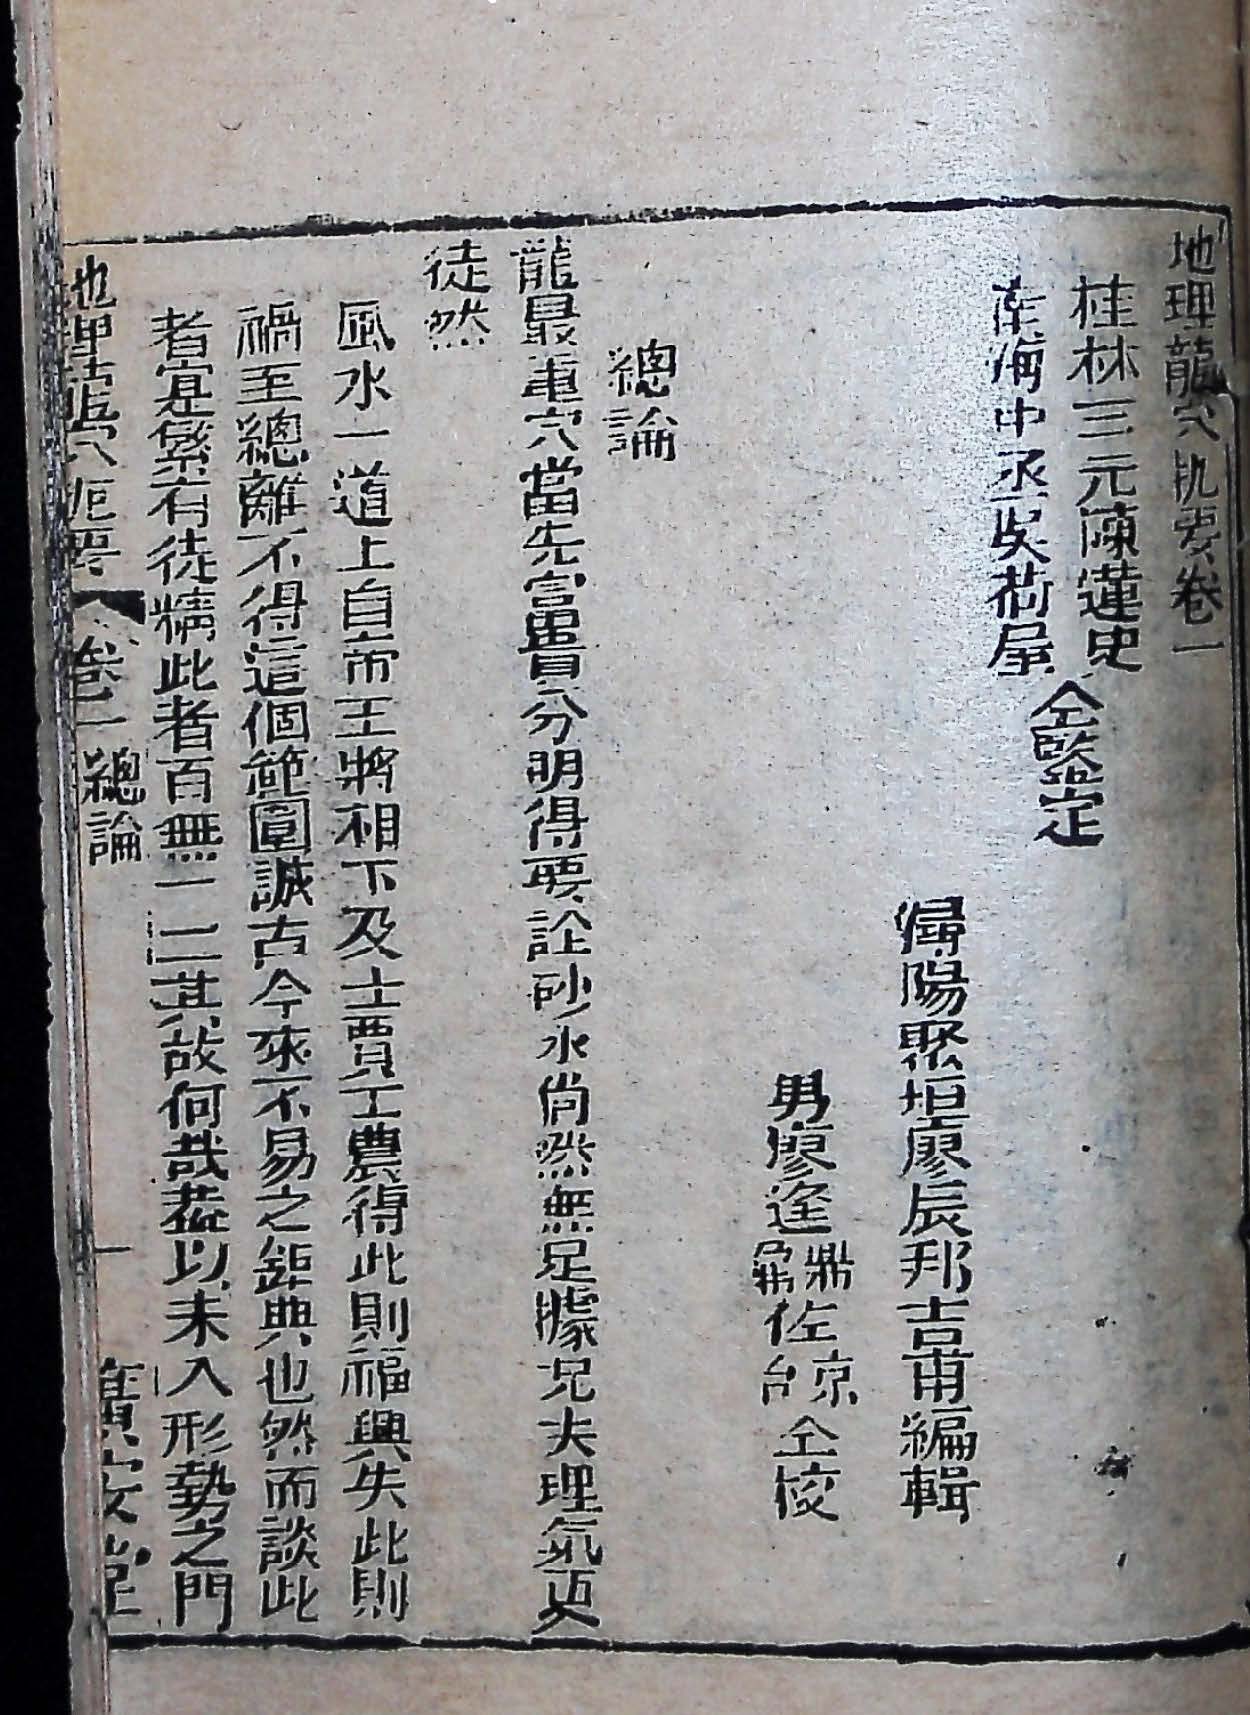 地理龍穴扼要卷一
桂林三元陳蓮史
南海中丞吳荷屋
仝鑒定
潯陽聚垣廖辰邦吉甫編輯
男廖逢鼎鼐佐京台仝校
總論
龍最重穴當先富貴分明得要訟砂水尚然無足據况夫理氣更
徒然
風水一道上自帝王將相下及士賈工農得此則福興失此則
禍至總離不得這個範圍誠古今來不易之鉅典也然而談此
者寔繁有徒精此者百無一二其故何哉葢以未入形勢之門
地理龍穴扼要 卷一 總論 一